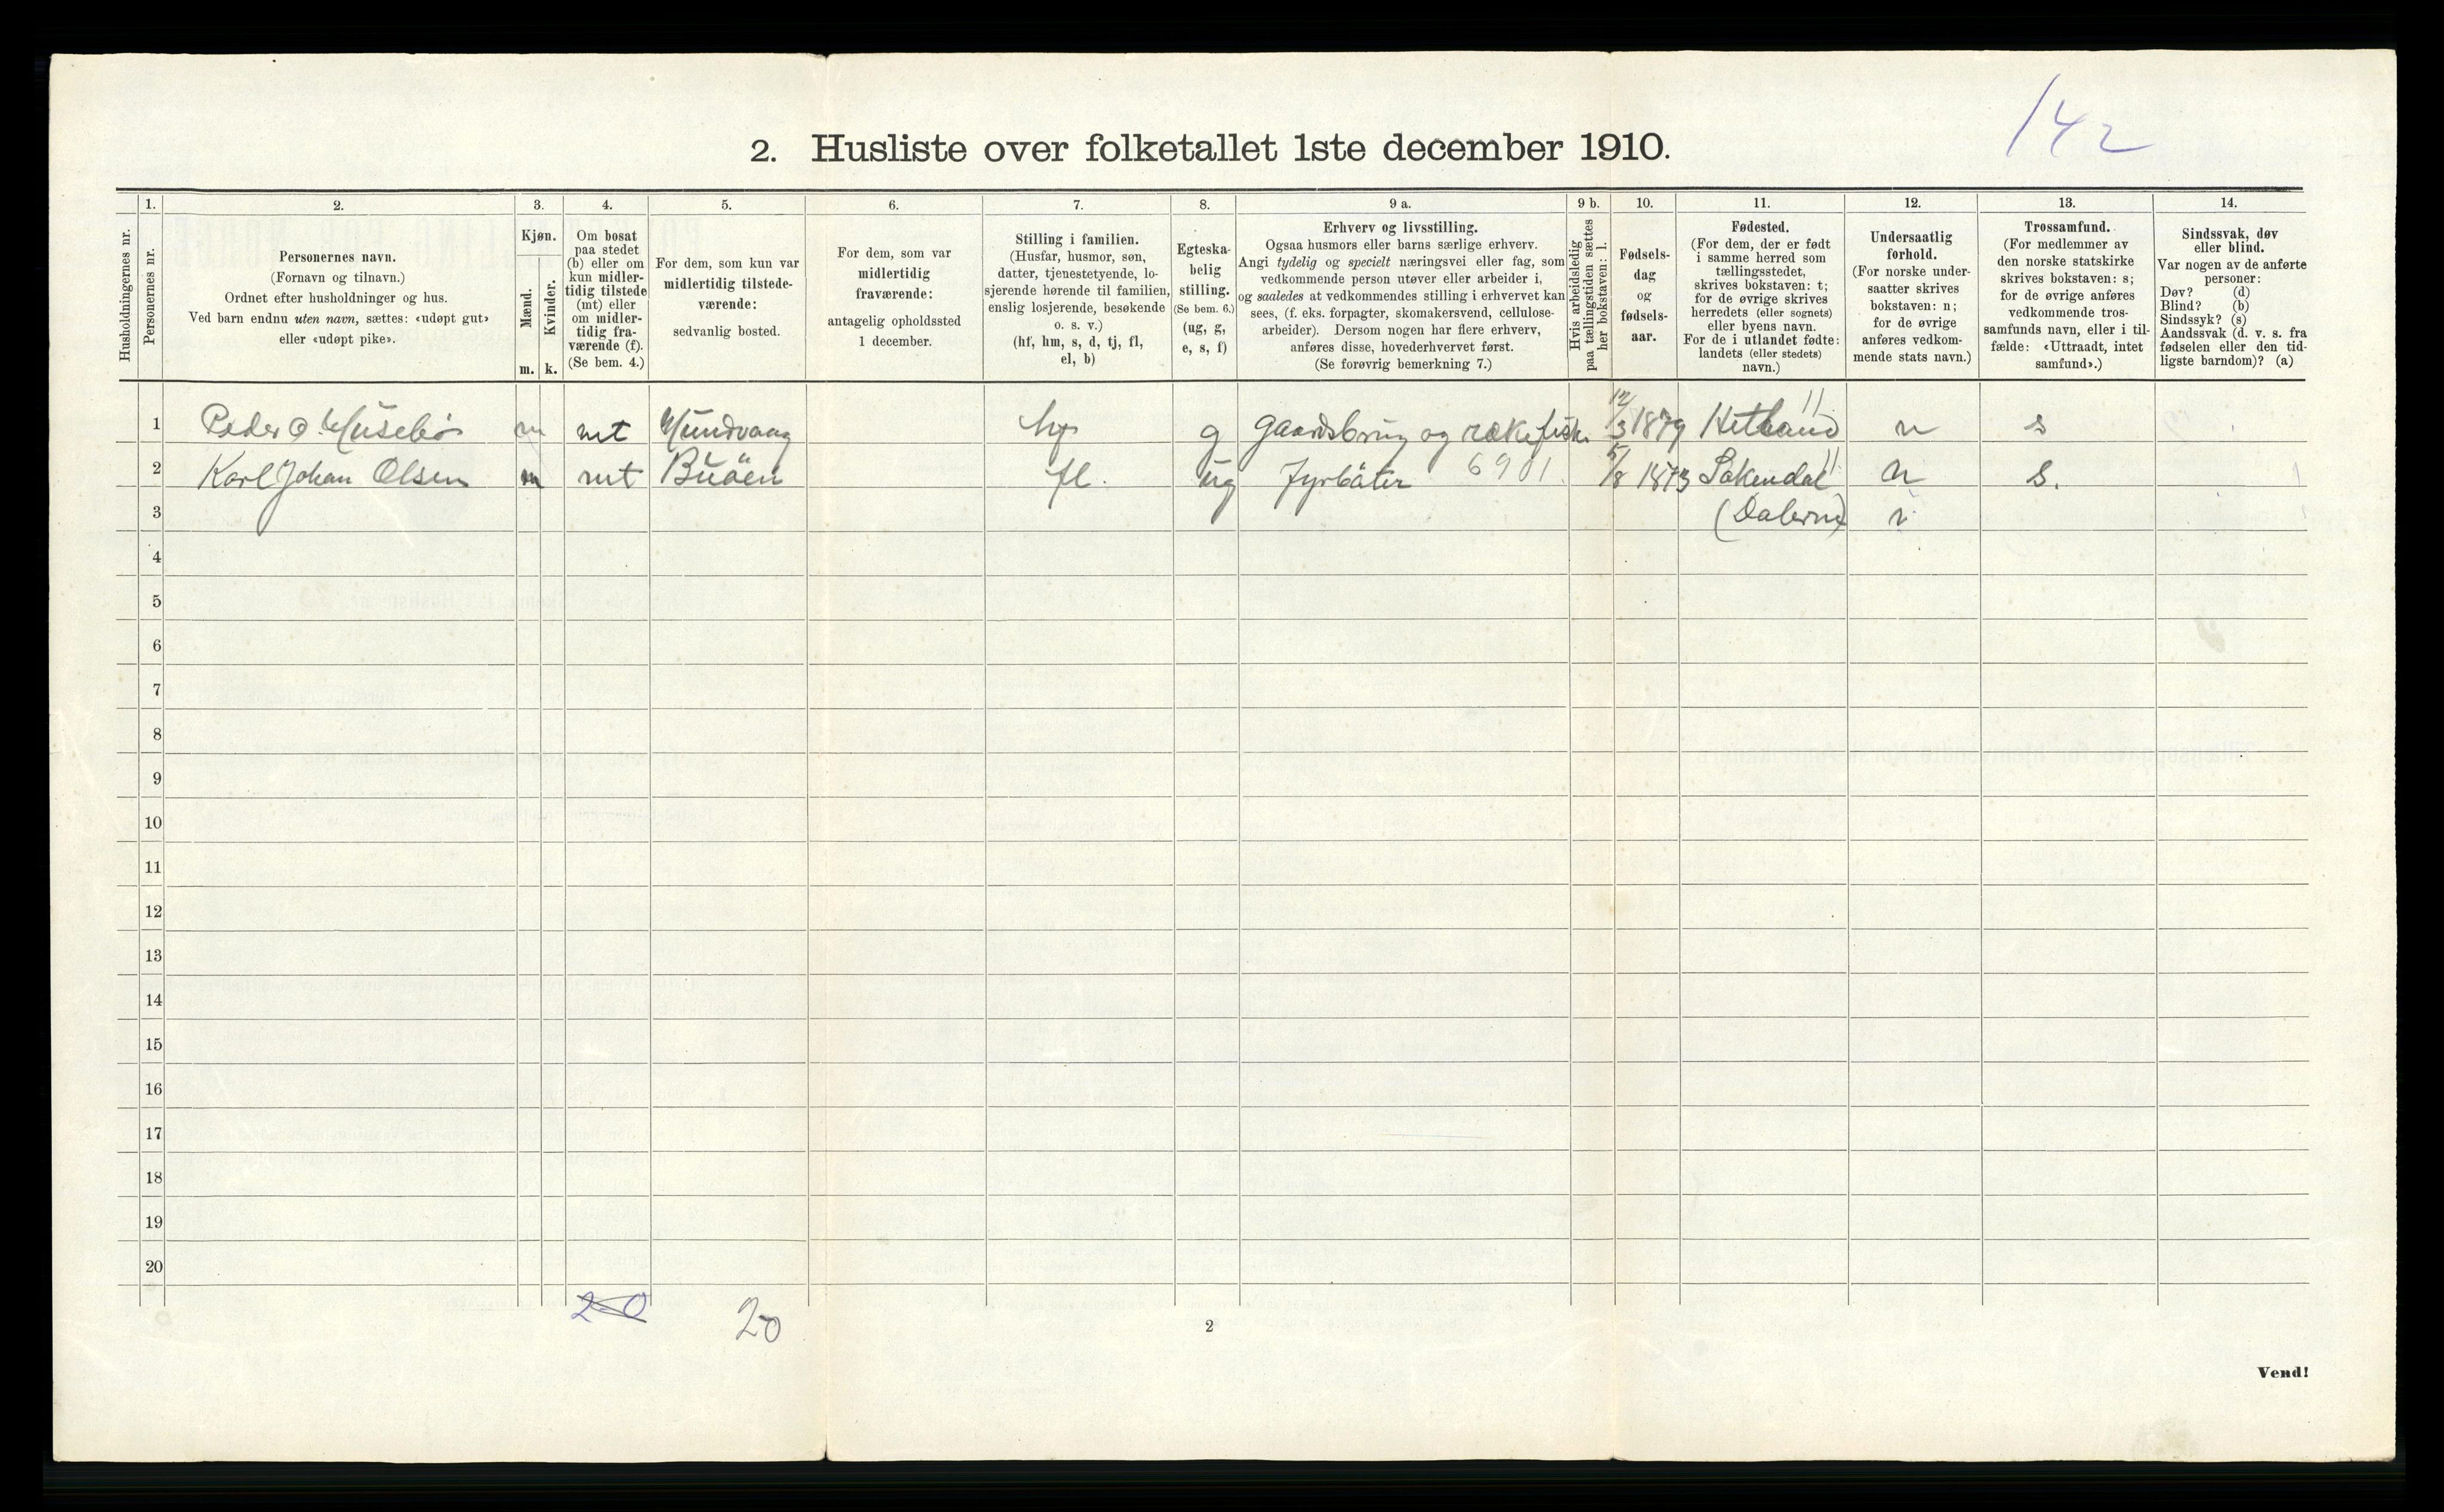 142
2. Husliste over folketallet 1ste december 1910.
Husholdningernes nr.
1.
Personernes nr.
2.
Personernes navn.
(Fornavn og tilnavn.)
Ordnet efter husholdninger og hus.
Ved barn endnu uten navn, sættes: «udøpt gut»
eller «udøpt pike».
3.
Kjøn.
Mænd.
Kvinder.
m. k.
4.
Om bosat
paa stedet
(b) eller om
kun midler-
tidig tilstede
(mt) eller
om midler-
tidig fra-
værende (f).
(Se bem. 4.)
5.
For dem, som kun var
midlertidig tilstede-
værende:
sedvanlig bosted.
6.
For dem, som var
midlertidig
fraværende:
antagelig opholdssted
1 december.
7.
Stilling i familien.
(Husfar, husmor, søn,
datter, tjenestetyende, lo-
sjerende hørende til familien,
enslig losjerende, besøkende
o. s. v.)
(hf, hm, s, d, tj, fl,
el, b)
8.
Egteska-
belig
stilling.
(Se bem. 6.)
(ug, g,
e, s, f)
9 a.
Erhverv og livsstilling.
Ogsaa husmors eller barns særlige erhverv.
Angi tydelig og specielt næringsvei eller fag, som
vedkommende person utøver eller arbeider i,
og saaledes at vedkommendes stilling i erhvervet kan
sees, (f. eks. forpagter, skomakersvend, cellulose-
arbeider). Dersom nogen har flere erhverv,
anføres disse, hovederhvervet først.
(Se forøvrig bemerkning 7.)
9 b.
Hvis arbeidsledig
paa tællingstiden sættes
her bokstaven: l.
10.
Fødsels-
dag
og
fødsels-
aar.
11.
Fødested.
(For dem, der er født
i samme herred som
tællingsstedet,
skrives bokstaven: t;
for de øvrige skrives
herredets (eller sognets)
eller byens navn.
For de i utlandet fødte:
landets (eller stedets)
navn.)
12.
Undersaatlig
forhold.
(For norske under-
saatter skrives
bokstaven: n;
for de øvrige
anføres vedkom-
mende stats navn.)
13.
Trossamfund.
(For medlemmer av
den norske statskirke
skrives bokstaven: s;
for de øvrige anføres
vedkommende tros-
samfunds navn, eller i til-
fælde: «Uttraadt, intet
samfund».)
14.
Sindssvak, døv
eller blind.
Var nogen av de anførte
personer:
Døv? (d)
Blind? (b)
Sindssyk? (s)
Aandssvak (d. v. s. fra
fødselen eller den tid-
ligste barndom)? (a)
1 Peder O. Husebø m mt Hundvaag g Gaardsbrug og rækefisk. 12/3 1879 Hetland n s
2 Karl Johan Olsen m mt Buöen fl. ug Fyrbøter 6901. 5/8 1873 Sokendal n s.
3 (Dalerne) n
4
5
6
7
8
9
10
11
12
13
14
15
16
17
18
19
20
2-0
20
2
Vend!